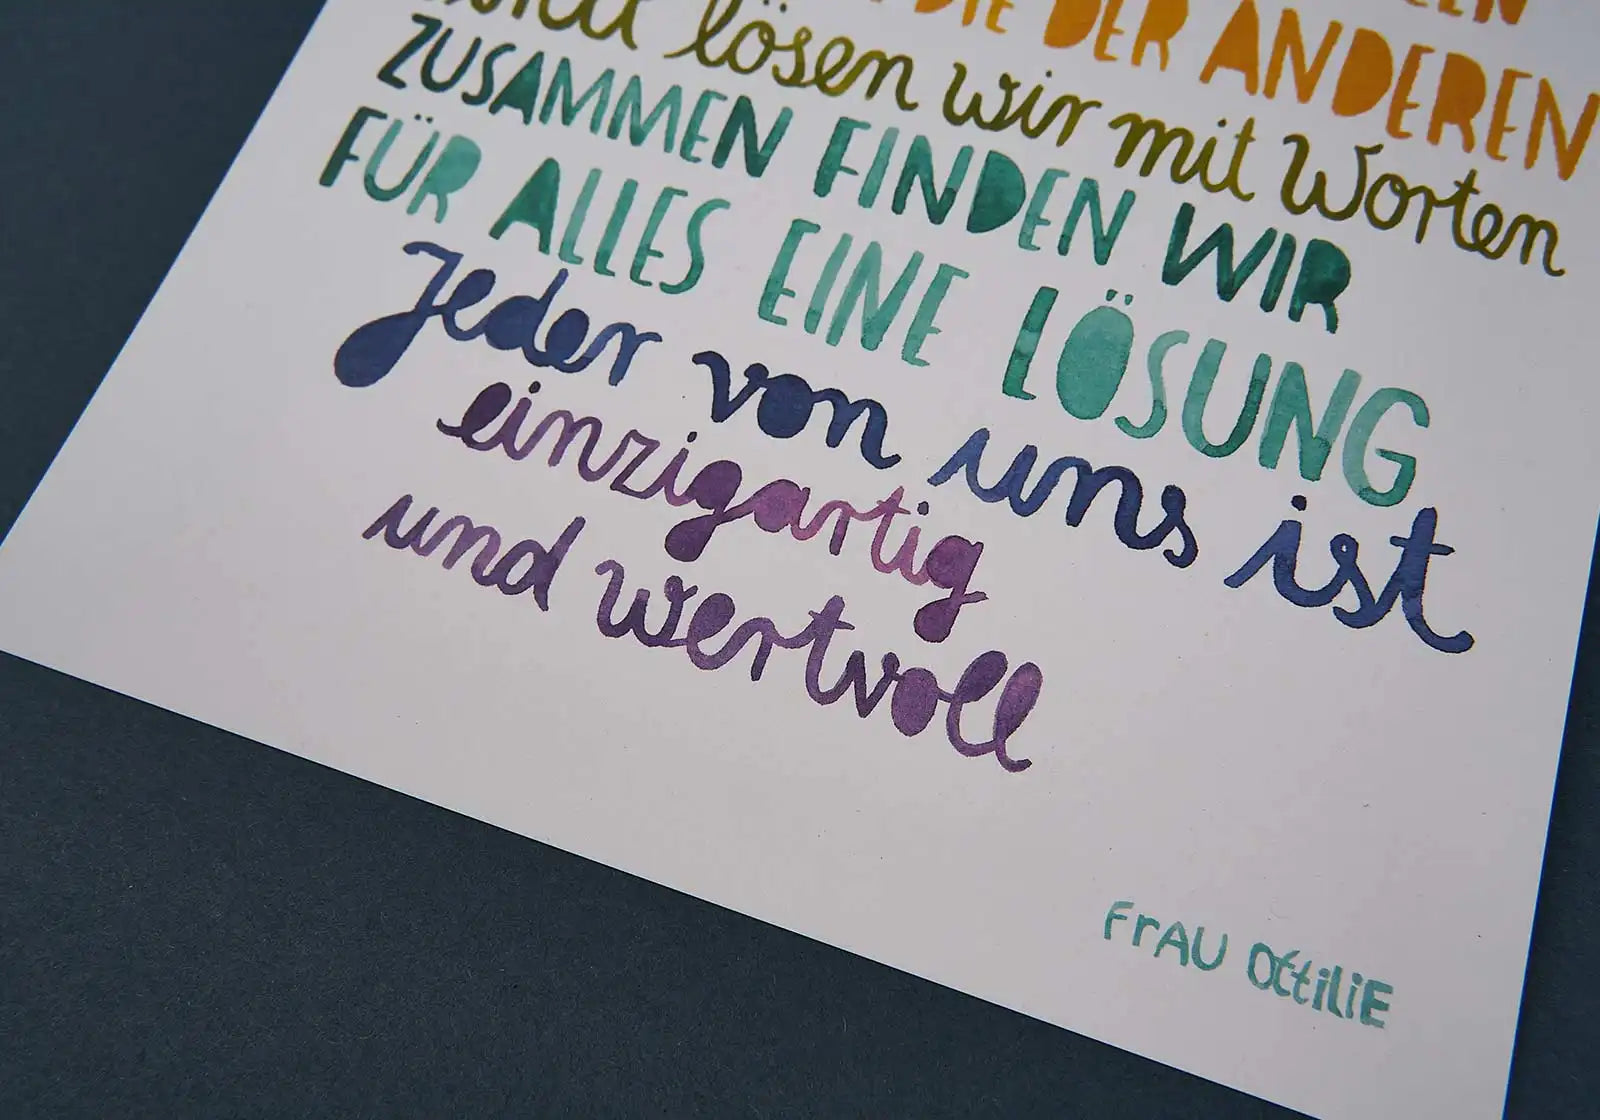 DIE DER ANDEREN
lösen wir mit Worten
ZUSAMMEN FINDEN WIR
FÜR ALLES EINE LÖSUNG
Jeder von uns ist
einzigartig
und wertvoll
FrAU OttiliE